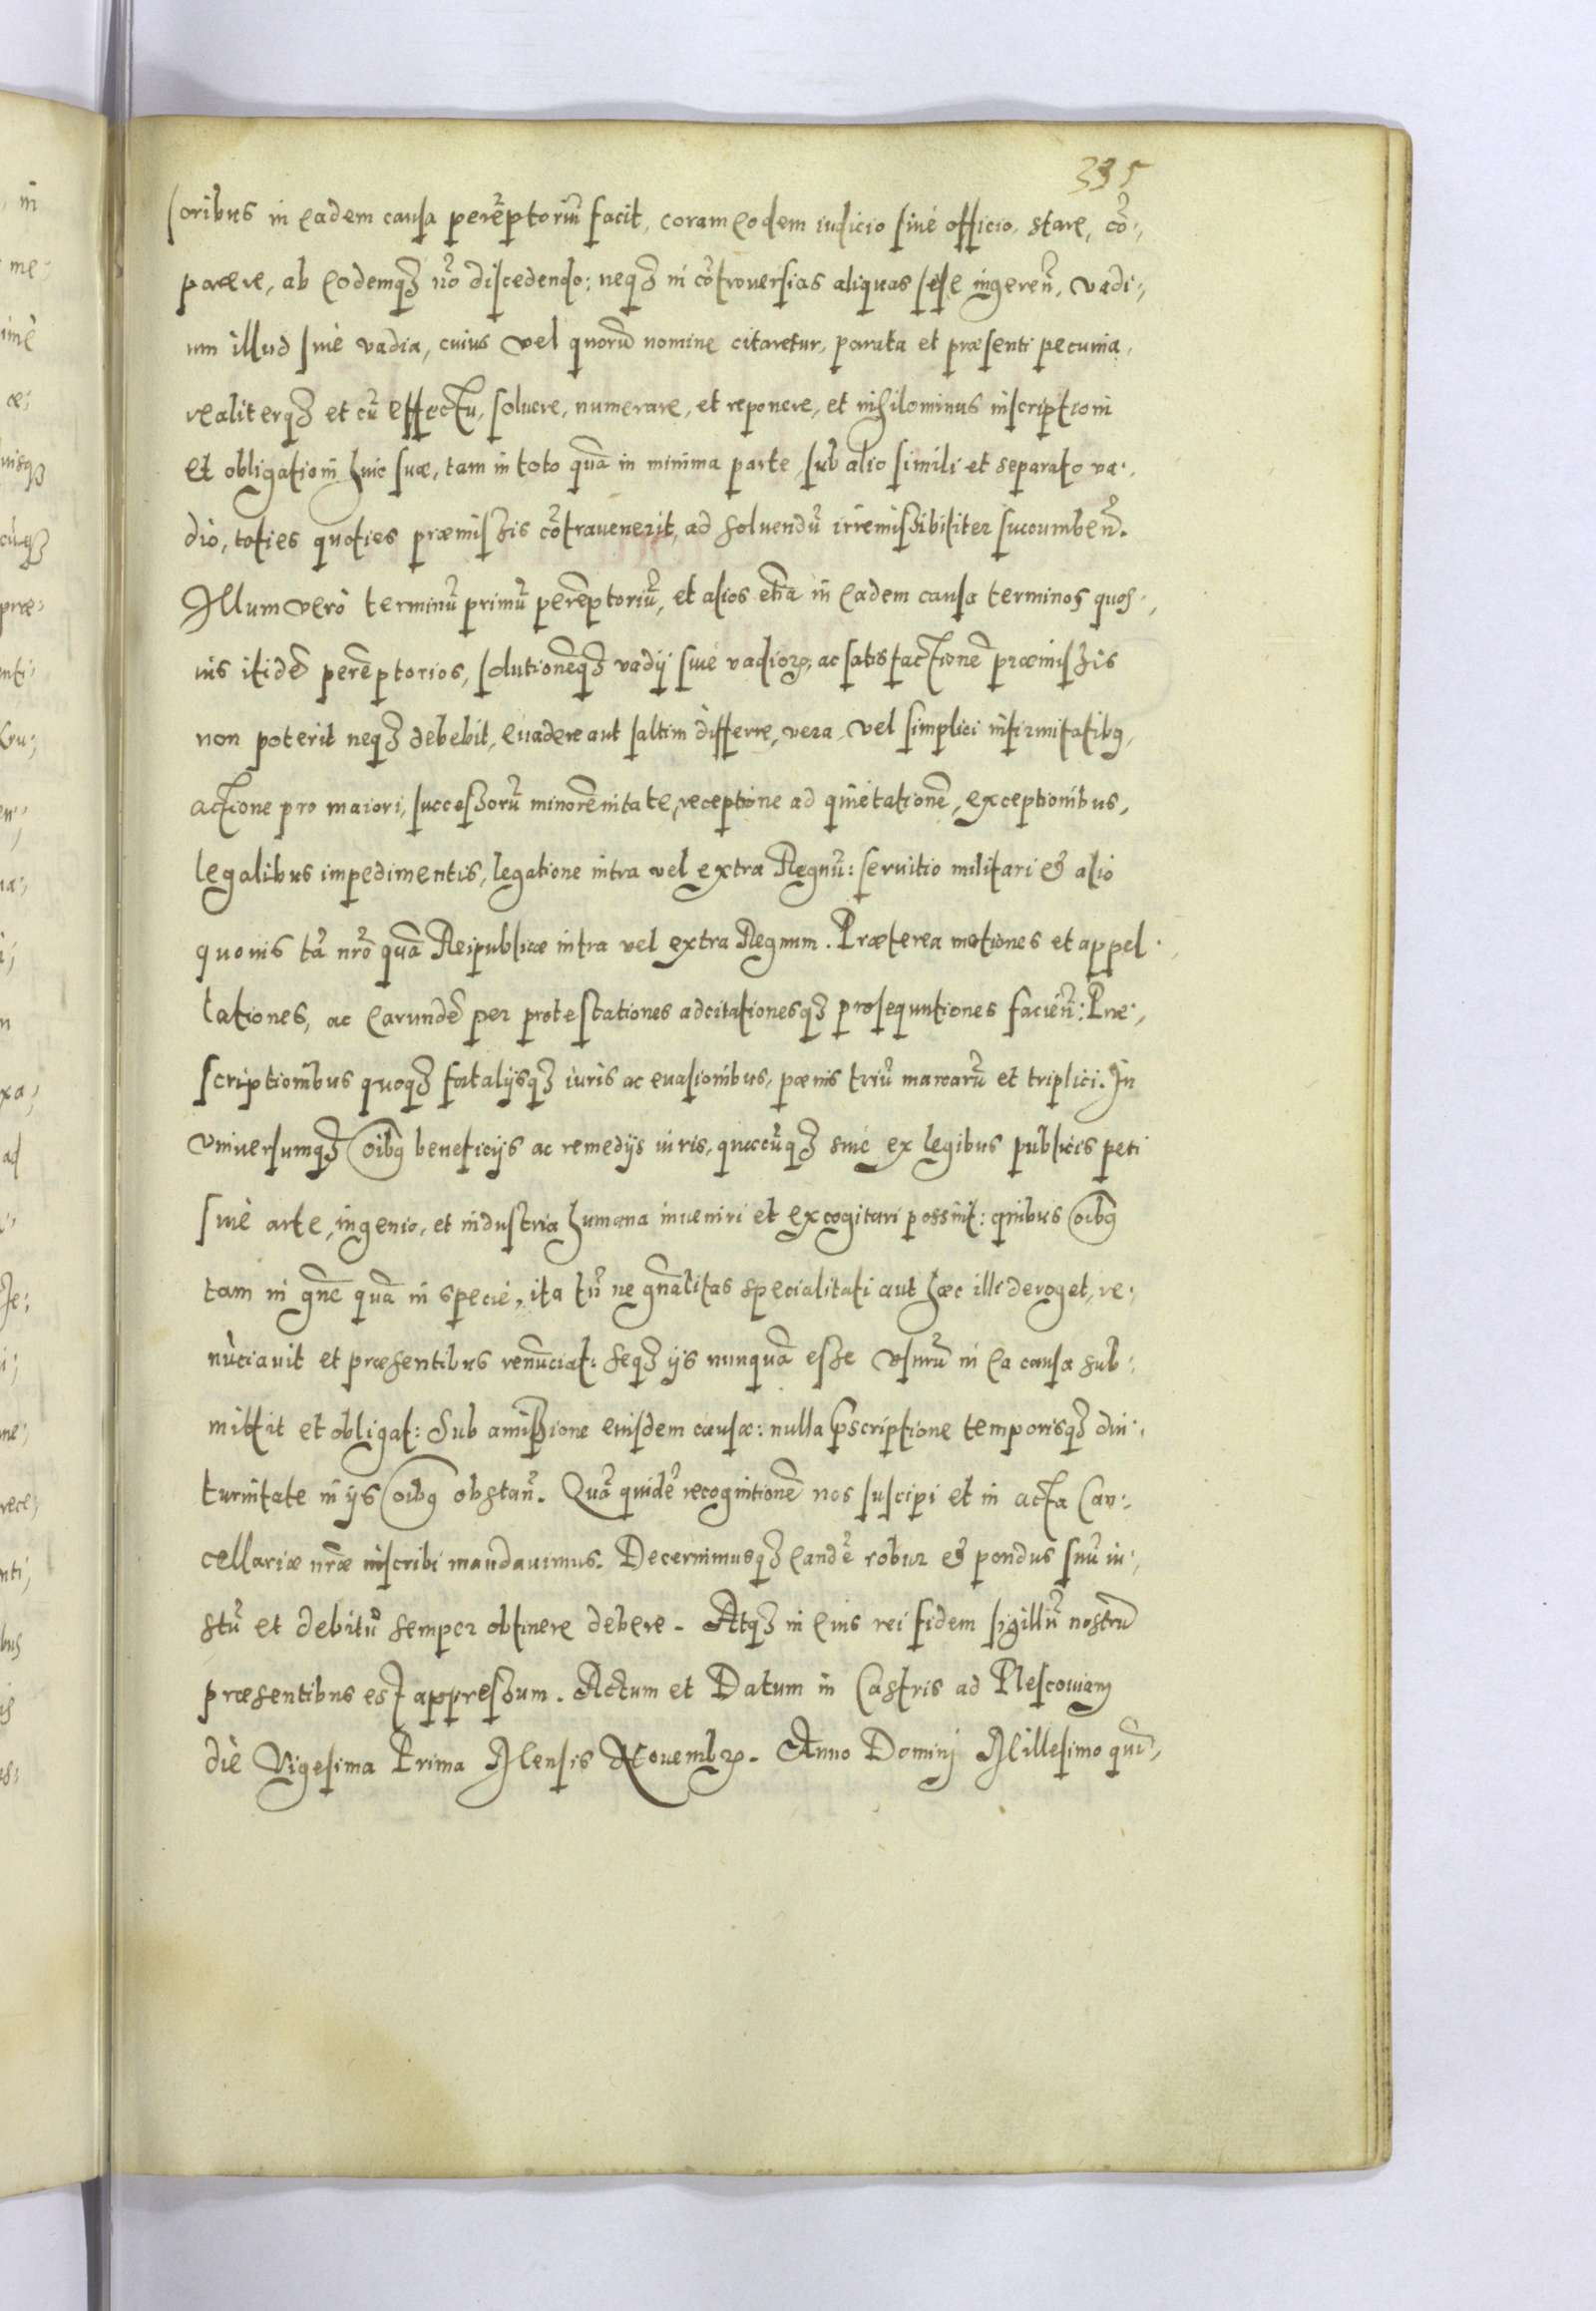 335
soribus in eadem causa perẽptoriũ facit, coram eodem iudicio siuè officio, stare, cõ:,
parere, ab eodemqȝ nõ discedendo: neqȝ in cõtrouersias aliquas sese ingereñ, vadi:,
um illud siuè vadia, cuius vel quorũ nomine citaretur, parata et præsenti pecunia,
realiterqȝ et cũ effectu, soluere, numerare, et reponere, et nihilominus inscriptioni
et obligationi huic suæ, tam in toto quã in minima parte, sub alio simili et separato va:,
dio, toties quoties præmissis cõtrauenerit, ad soluendũ irremissibiliter succumbeñ.
Illum verò terminũ primũ perẽptoriũ, et alios etiã in eadem causa terminos quos:,
uis itidẽ perẽptorios, solutionẽqȝ vadij siuè vadioꝝ, ac satisfactionẽ præmissis
non poterit neqȝ debebit, euadere aut saltim differre, vera vel simplici infirmitatibꝯ,
actione pro maiori, successorũ minorẽnitate, receptione ad quietationẽ, exceptionibus,
legalibus impedimentis, legatione intra vel extra Regnũ: seruitio militari et alio
quouis tã nr̃o quã Reipublicæ intra vel extra Regnum. Præterea motiones et appel:,
lationes, ac earundẽ per protestationes adcitationesqȝ prosequutiones facieñ: Præ:,
scriptionibus quoqȝ fatalijsqȝ iuris ac euasionibus, pænis triũ marcarũ et triplici. In
vniuersumqȝ oĩbꝯ beneficijs ac remedijs iuris, quæcũqȝ siuè ex legibus publicis peti
siuè arte, ingenio, et industria humana inueniri et excogitari possint: quibus oĩbꝯ
tam in gñe quã in specie, ita tñ ne gñalitas specialitati aut hæc illi deroget, re:,
nũciauit et præsentibus renũciat: seqȝ ijs nunquã esse vsurũ in ea causa sub:,
mittit et obligat: Sub amissione eiusdem causæ: nulla p̃scriptione temporisqȝ diu:,
turnitate in ijs oĩbꝯ obstañ. Quã quidẽ recognitionẽ nos suscipi et in acta Can:,
cellariæ nr̃æ inscribi mandauimus. Decernimusqȝ eandẽ robur et pondus suũ iu:,
stũ et debitũ semper obtinere debere. Atqȝ in eius rei fidem sigillũ nostrũ
præsentibus est appressum. Actum et Datum in Castris ad Plescouiam
diè Vigesima Prima Mensis Nouembꝝ. Anno Domini Millesimo quĩ,